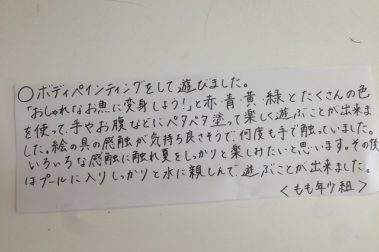 ○ボディペインティングをして遊びました。
「おしゃれなお魚に変身しよう!」と赤・青・黄・緑とたくさんの色
を使って、手やお腹などにペタペタ塗って楽しく遊ぶことが出来ま
した。絵の具の感触が気持ち良さそうで、何度も手で触っていました。
いろいろな感触に触れ夏をしっかりと楽しみたいと思います。その後
はプールに入りしっかりと水に親しんで、遊ぶことが出来ました。
<もも年少組>